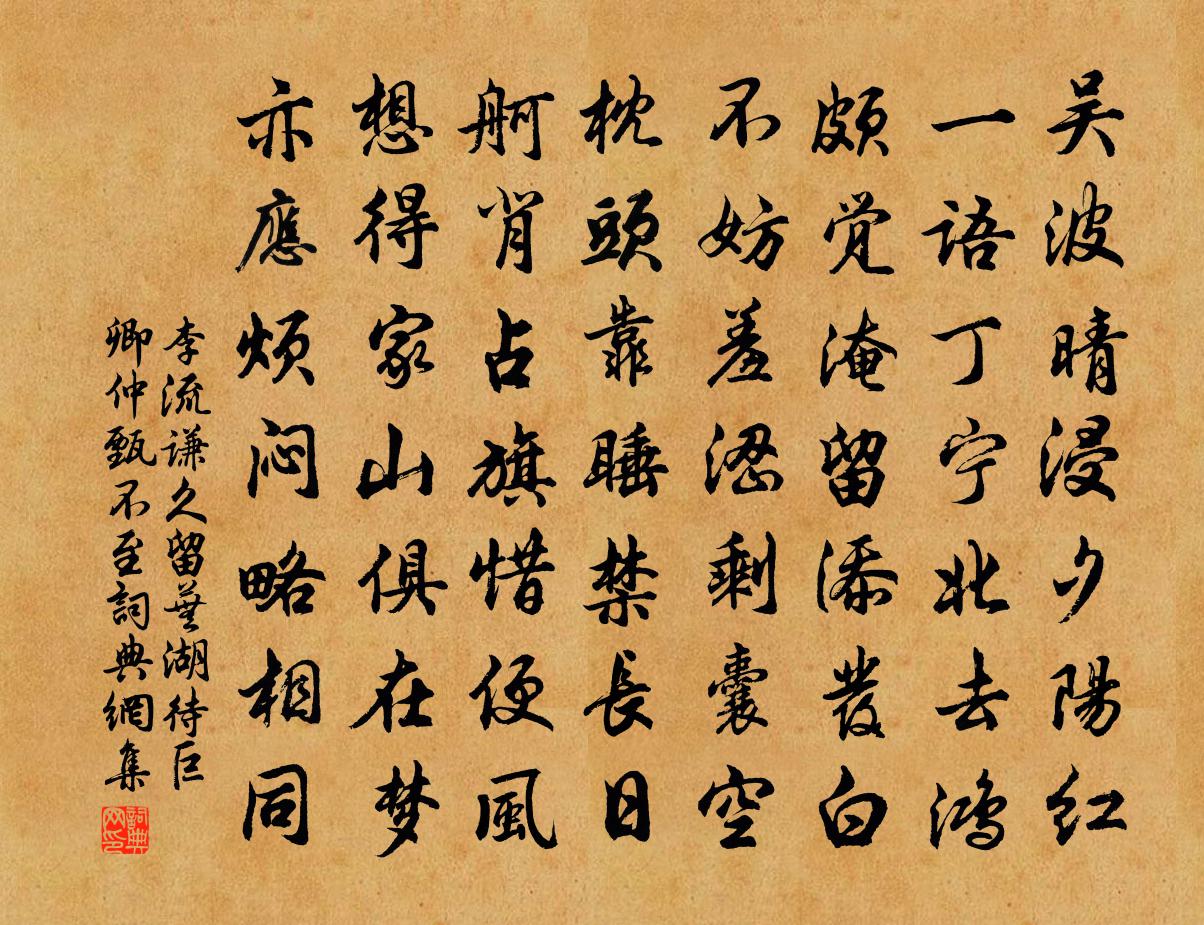 吴波晴浸夕陽红
一語丁宁北去鸿
頗覚淹留添發白
不妨羞涩剩囊空
枕頭靠睡禁長日
舸背占旗惜便風
想得家山俱在梦
亦應烦闷略相同
李流谦久留蕪湖待巨
卿仲甄不至詞典網集
詞典
网印